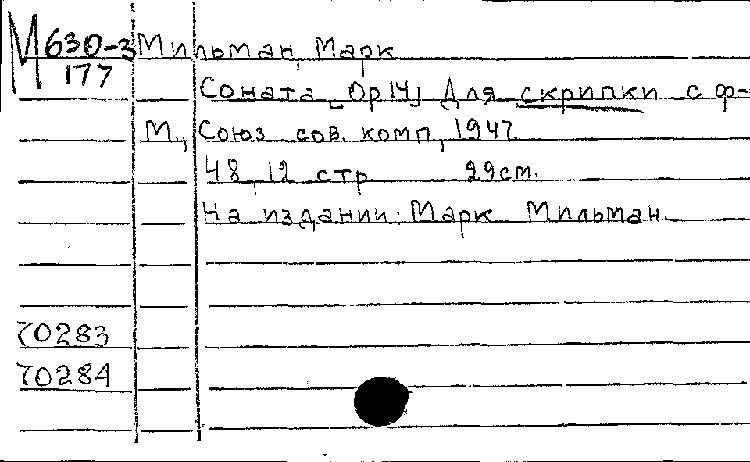 М 630-3 Мильман, Марк
177
Соната [Op 14] Для скрипки с ф-
М., Союз сов. комп, 1947
48, 12 стр 29см.
На издании: Марк Мильман.
70283
70284